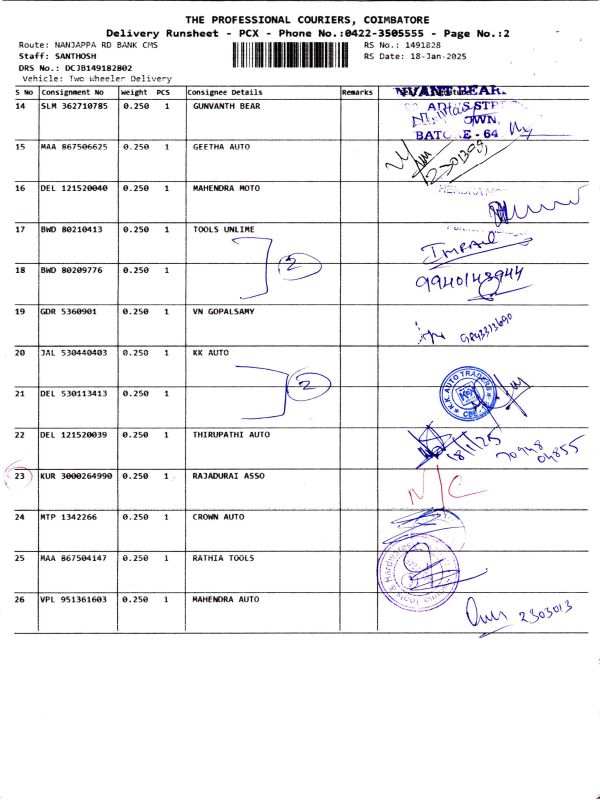 THE PROFESSIONAL COURIERS, COIMBATORE
Delivery Runsheet - PCX - Phone No.:0422-3505555 - Page No.:2
Route: NANJAPPA RD BANK CMS RS No.: 1491828
Staff: SANTHOSH RS Date: 18-Jan-2025
DRS No.: DCJB149182802
Vehicle: Two Wheeler Delivery
S No Consignment No Weight PCS Consignee Details Remarks
14 SLM 362710785 0.250 1 GUNVANTH BEAR NVANT BEAR.
OWN,
BAT E - 64
15 MAA 867506625 0.250 1 GEETHA AUTO
16 DEL 121520040 0.250 1 MAHENDRA MOTO
17 BWD 80210413 0.250 1 TOOLS UNLIME
2
18 BWD 80209776 0.250 1 9940143944
19 GDR 5360901 0.250 1 VN GOPALSAMY
20 JAL 530440403 0.250 1 KK AUTO
2 K.K. AUTO TRADERS
21 DEL 530113413 0.250 1
22 DEL 121520039 0.250 1 THIRUPATHI AUTO 18/1/25
23 KUR 3000264990 0.250 1 RAJADURAI ASSO N/C
24 MTP 1342266 0.250 1 CROWN AUTO
25 MAA 867504147 0.250 1 RATHIA TOOLS
26 VPL 951361603 0.250 1 MAHENDRA AUTO 2303013